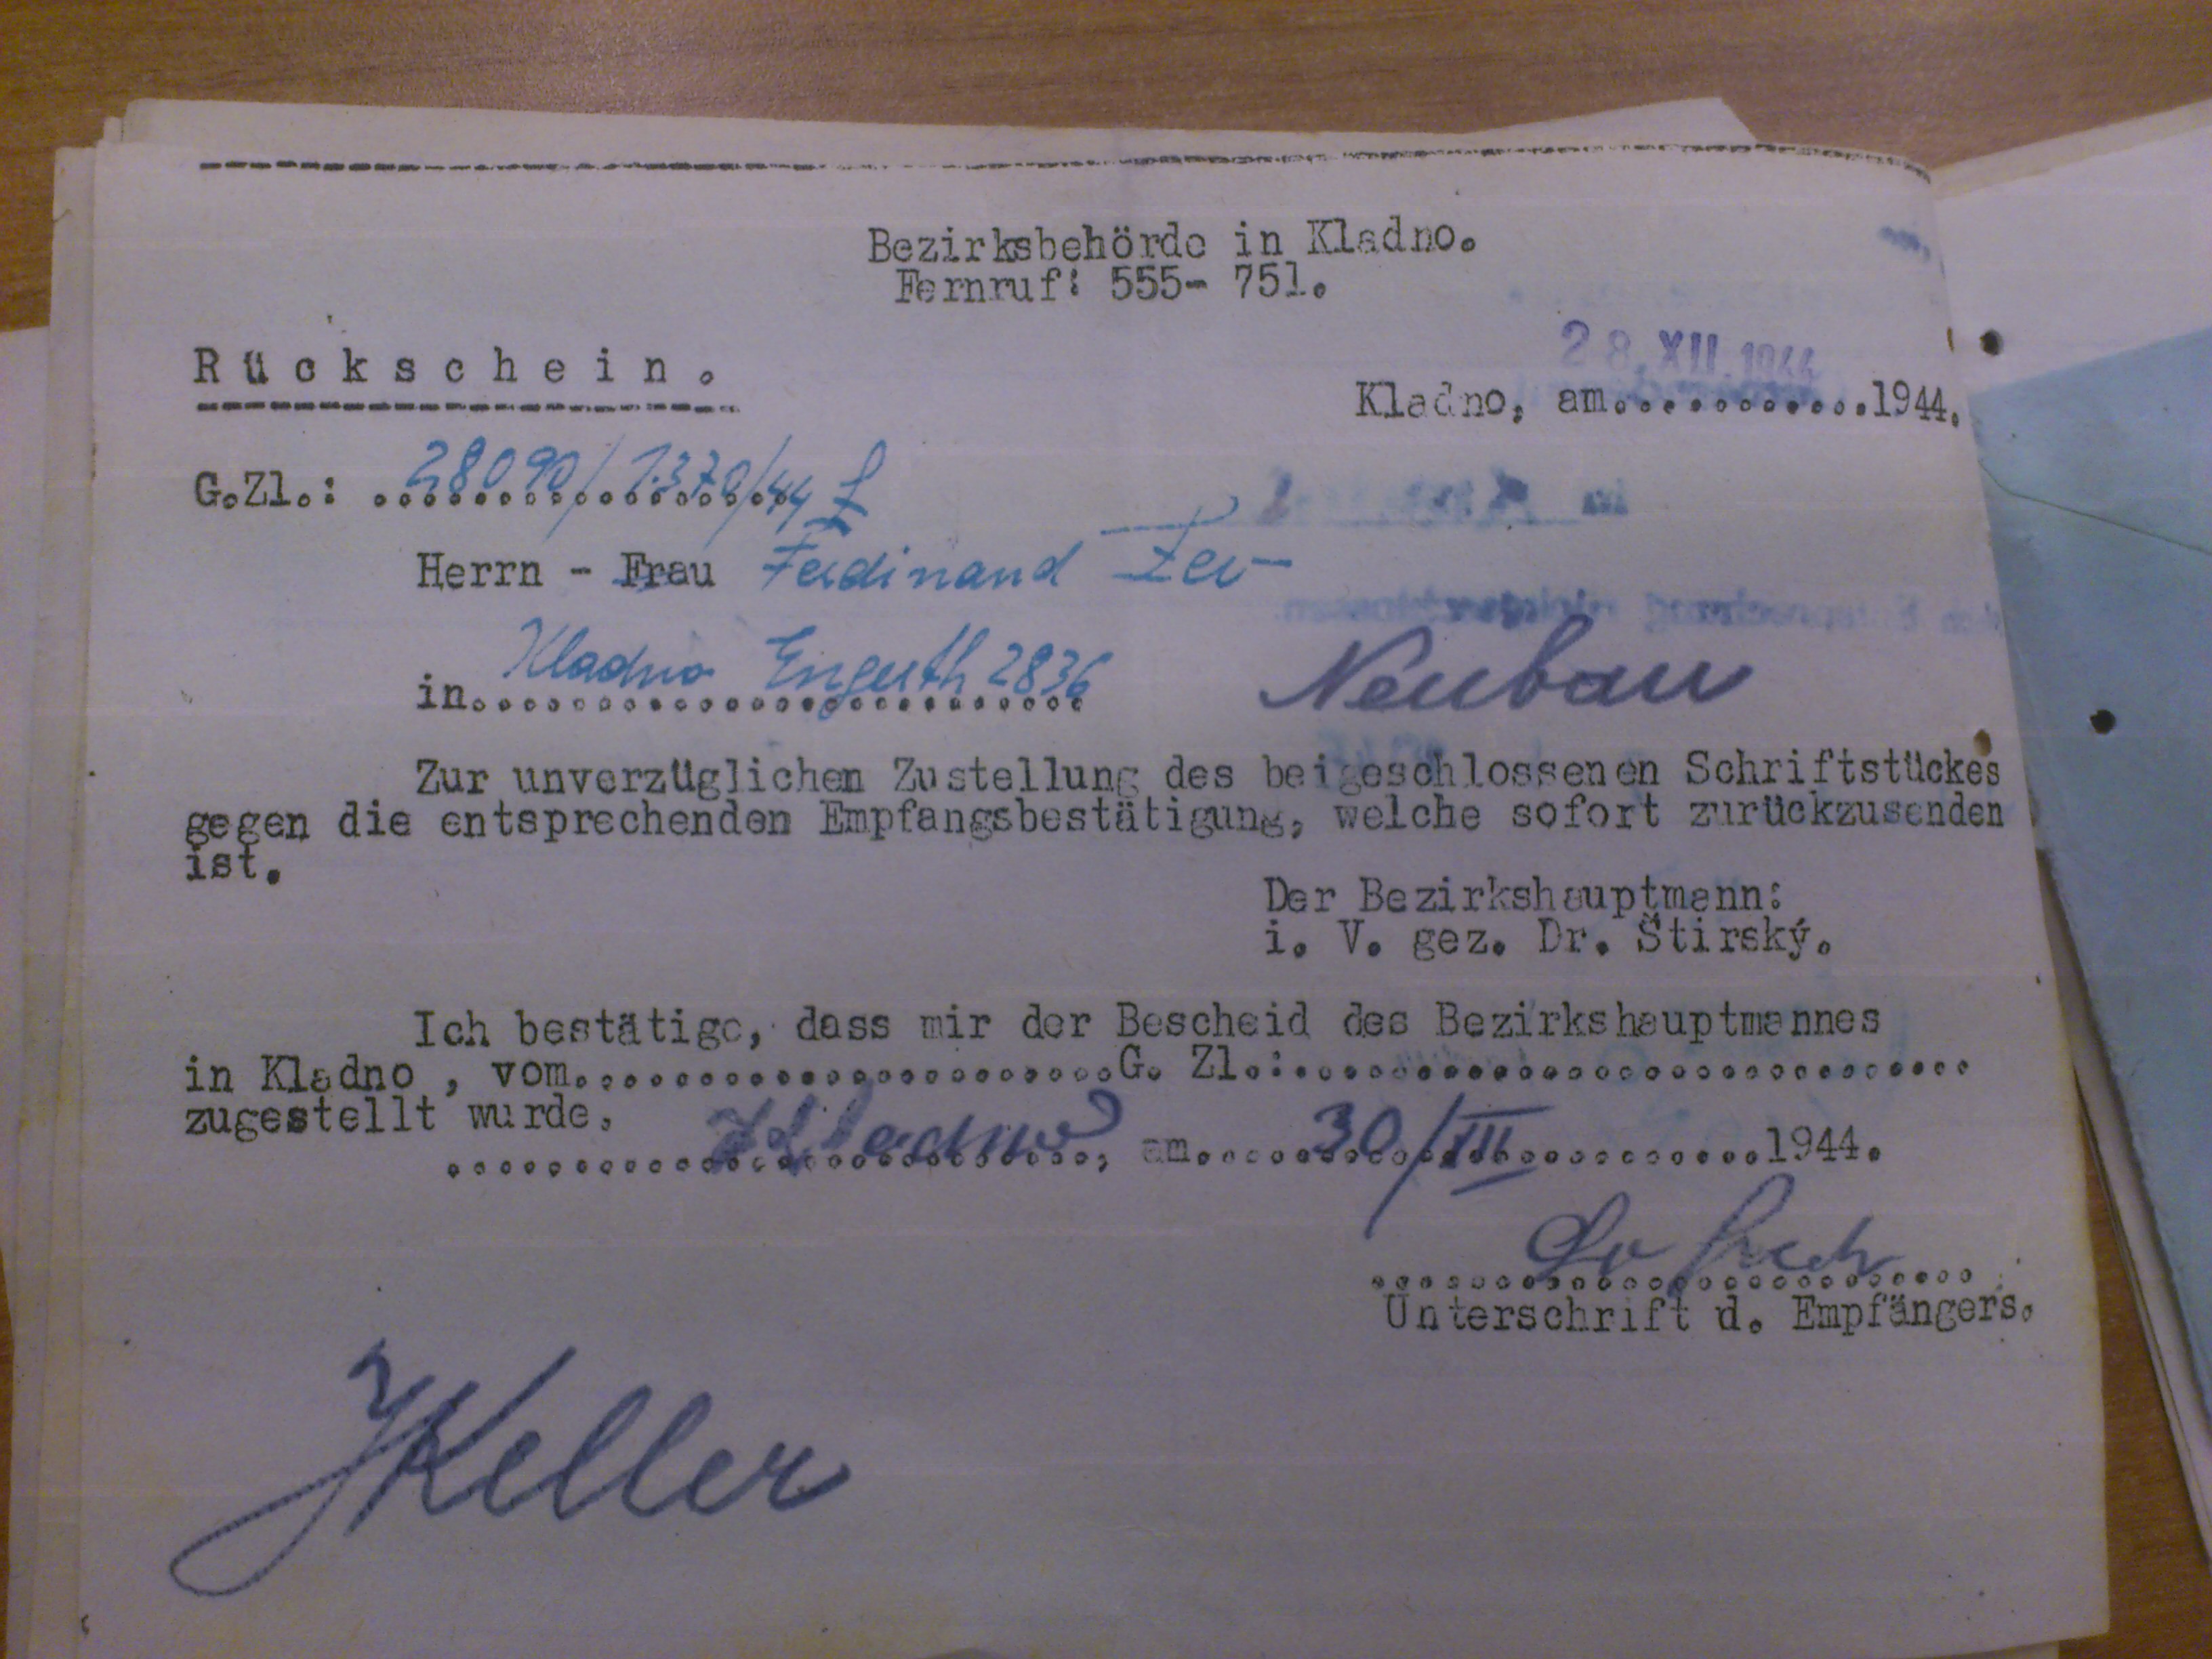 Bezirksbehörde in Kladno.
Fernruf: 555- 751.
Rückschein.
28. XII. 1944
Kladno, am............1944.
G.Zl.: 28090/1370/44
Herrn - Frau Ferdinand
in Kladno 2836 Neubau
Zur unverzüglichen Zustellung des beigeschlossenen Schriftstückes
gegen die entsprechenden Empfangsbestätigung, welche sofort zurückzusenden
ist.
Der Bezirkshauptmann:
i. V. gez. Dr. Štirský.
Ich bestätige, dass mir der Bescheid des Bezirkshauptmannes
in Kladno , vom......................G. Zl.:...........................
zugestellt wurde.
Kladno, am 30/XII 1944.
Unterschrift d. Empfängers.
Keller